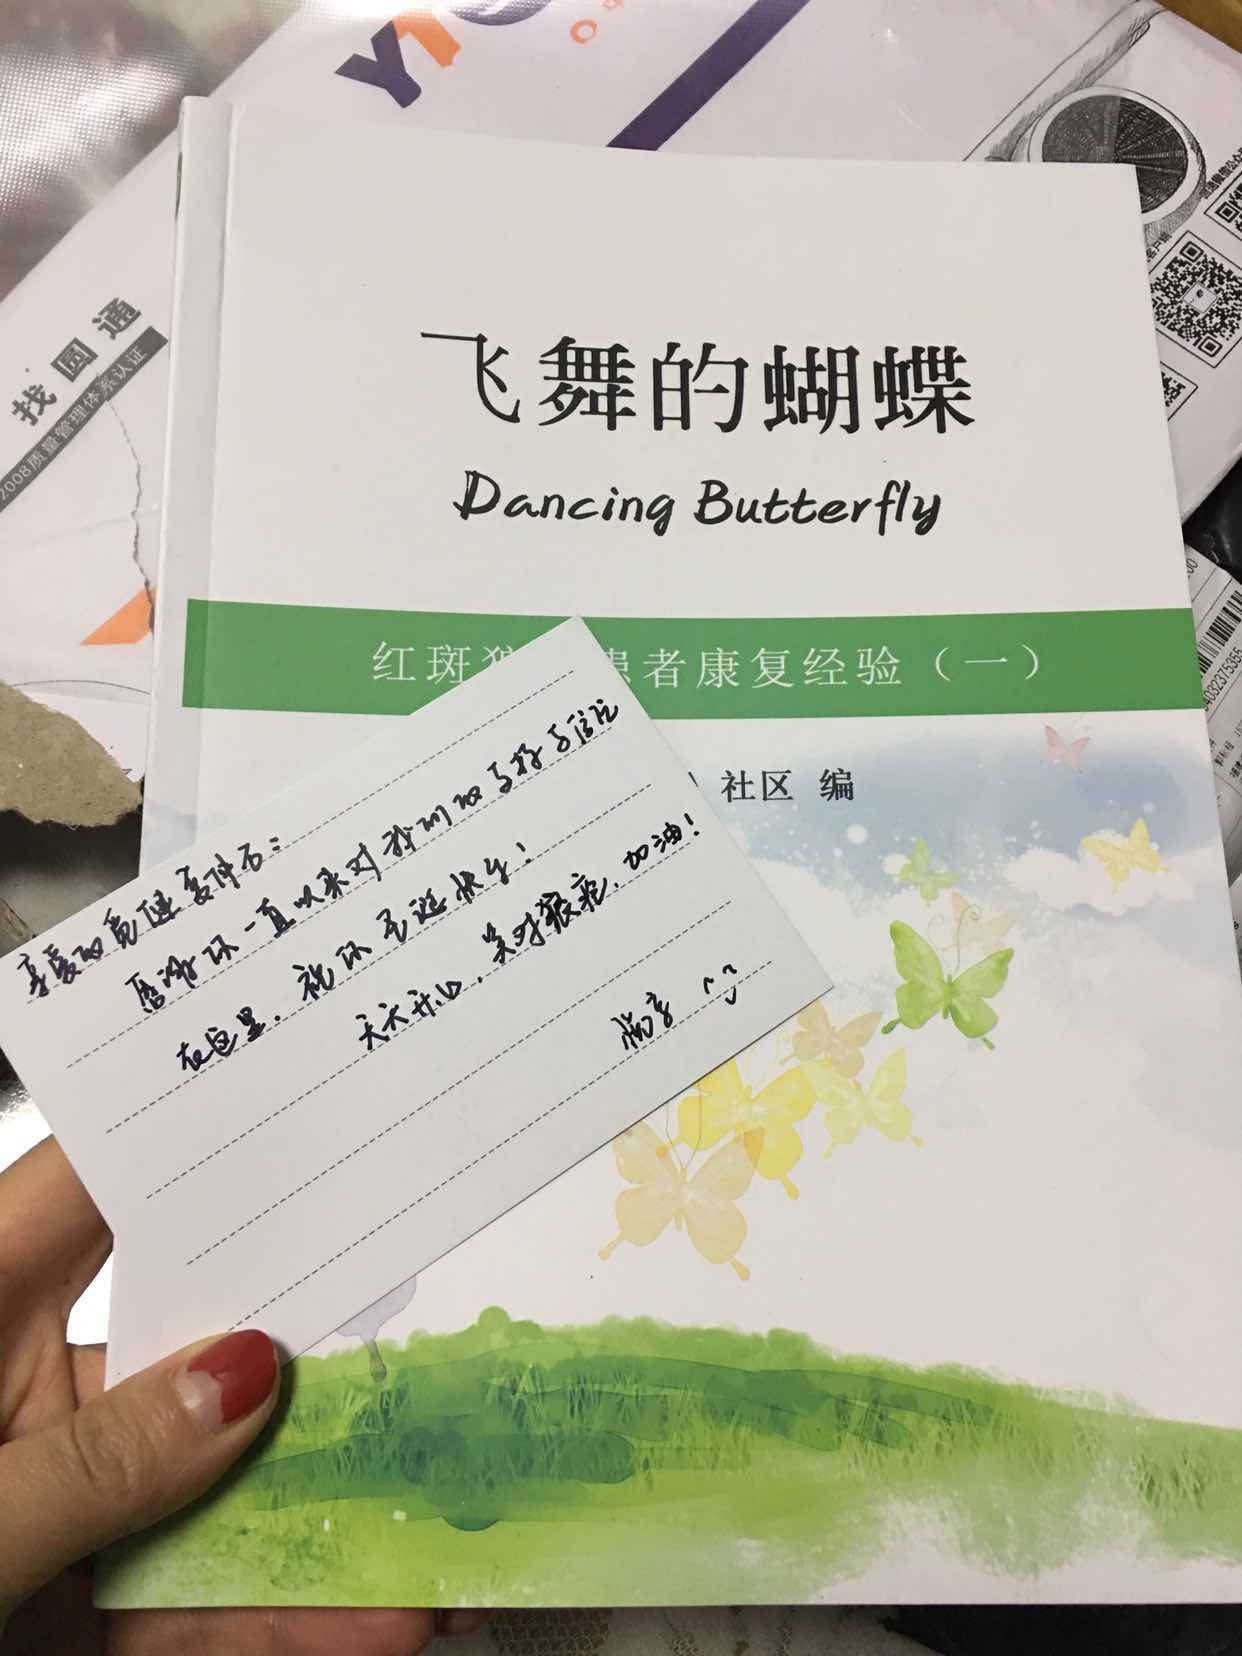 找圆通
2008质量管理体系认证
飞舞的蝴蝶
Dancing Butterfly
红斑狼 患者康复经验（一）
社区 编
亲爱的
感谢你一直以来对我们的支持与信任
在这里，祝你圣诞快乐！
天天开心，笑对狼疮，加油！